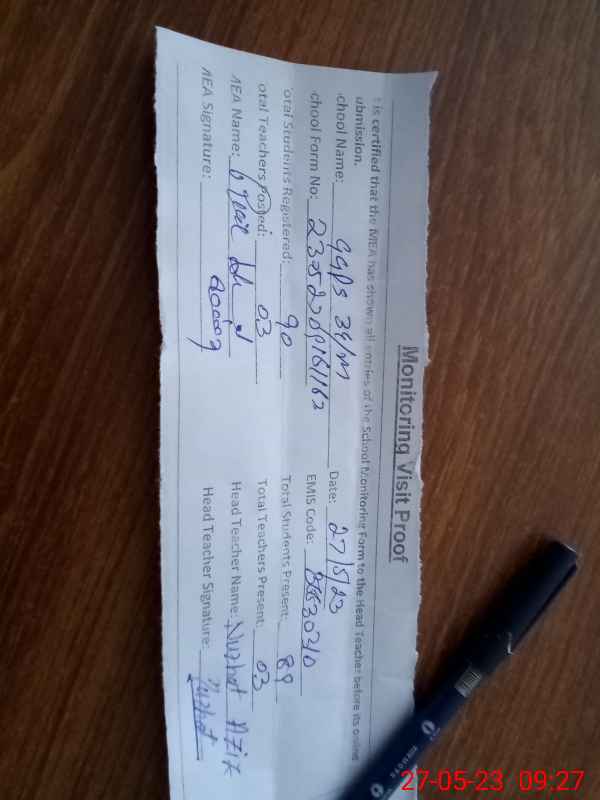 Monitoring Visit Proof
t is certified that the MEA has shown all entries of the School Monitoring Form to the Head Teacher before its online
ubmission.
chool Name: GGPS 34/M Date: 27/5/23
chool Form No: EMIS Code:
otal Students Registered: 90 Total Students Present: 89
otal Teachers Posted: 03 Total Teachers Present: 03
MEA Name: Head Teacher Name: Nuzhat Aziz
MEA Signature: Head Teacher Signature: Nuzhat
27-05-23 09:27